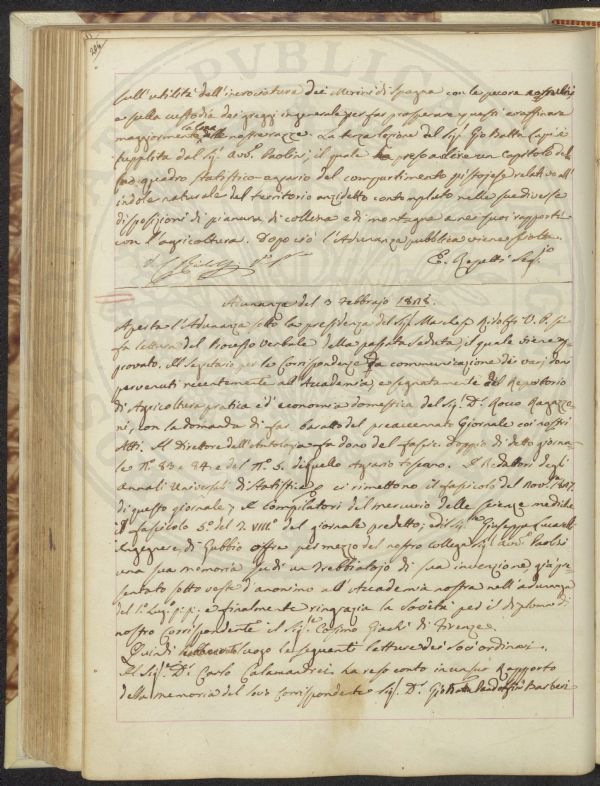 204
sull'utilità dell'incrociatura dei Merini di Spagna con le pecore nostrali,
e sulla custodia dei greggi in generale per far prosperare questi e raffinare
maggiormente la lana delle nostre razze. La terza lezione del Sig. Gio Batta è
supplita dal Sig. Avv. Paolini, il quale ha preso a dire un Capitolo del
suo quadro statistico-agrario del compartimento pistojese relativo all'
indole naturale del territorio anzidetto contemplato nelle sue diverse
disposizioni di pianura di collina e di montagna e nei suoi rapporti
con l'agricoltura. Dopo ciò l'Adunanza pubblica viene sciolta.
E. Repetti Seg.io
Adunanza del 3 Febbrajo 1828.
Aperta l'Adunanza sotto la presidenza del Sig. Marchese Ridolfi V. P. si
fa lettura del Processo Verbale della passata seduta, il quale viene ap
provato. Il Segretario per le Corrispondenze dà comunicazione dei varj doni
pervenuti recentemente all'Accademia, e segnatamente del Repertorio
di Agricoltura pratica e d'economia domestica del Sig. D. Rocco Ragazzo
ni, con la domanda di far baratto del preaccennato Giornale coi nostri
Atti. Il Direttore dell'Antologia fa dono del fascic. doppio di detto giorna
le N.i 83 e 84 e del N.o 5. di quello Agrario toscano. I Redattori degli
Annali Universali di Statistica ci rimettono il fascicolo del Nov. 1827
di questo giornale; I compilatori del mercurio delle scienze mediche
il fascicolo 5.o del T. VIII.o del giornale predetto; ed il Sig. Giuseppe
Ingegnere di Gubbio offre per mezzo del nostro collega Sig. Avv. Paolini
una sua memoria su di un Trebbiatojo di sua invenzione già pre
sentato sotto veste d'anonimo all'Accademia nostra nell'adunanza
del 1.o Lug.o p.p. e finalmente ringrazia la Società pel diploma di
nostro Corrispondente il Sig. Cosimo Giachi di Firenze.
Quindi ebbero luogo le seguenti letture dei soci ordinari.
Il Sig. D. Carlo Calamandrei ha reso conto in un suo Rapporto
della memoria del socio Corrispondente Sig. D. Barberi